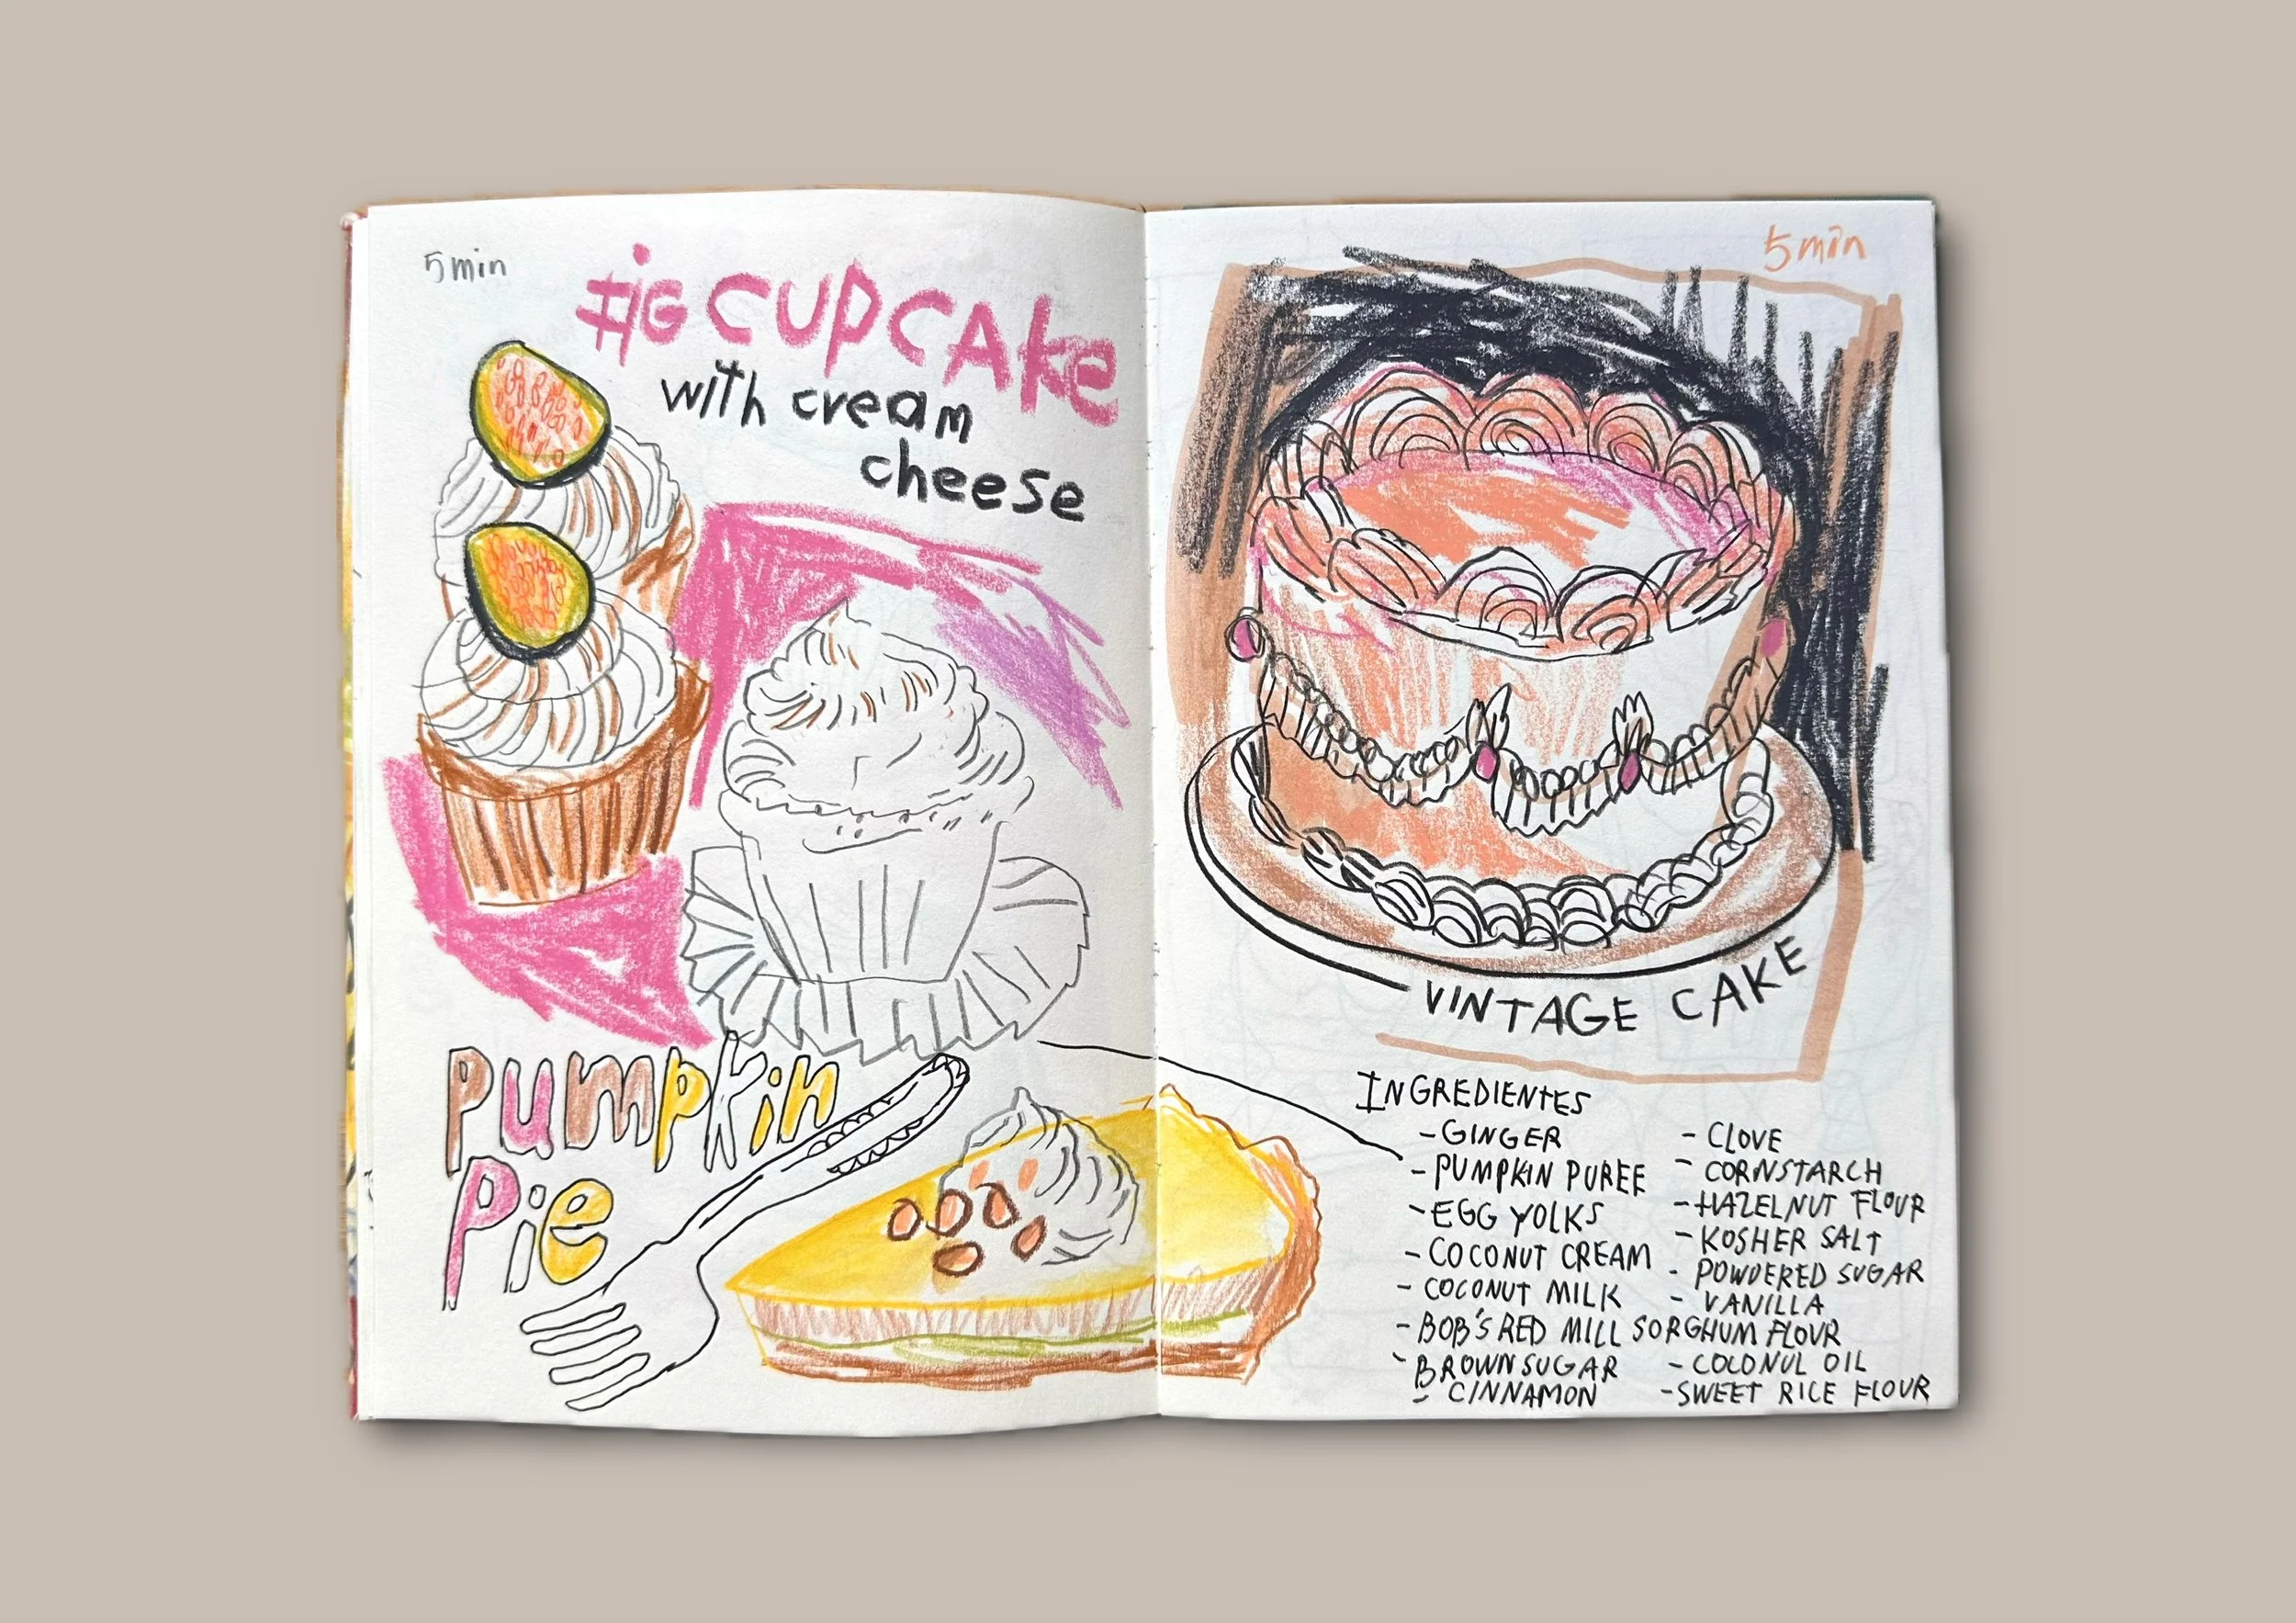 5 min
fig CUPCAke
with cream
cheese
pumpkin
Pie
5 min
VINTAGE CAKE
INGREDIENTES
- GINGER
- PUMPKIN PUREE
- EGG YOLKS
- COCONUT CREAM
- COCONUT MILK
- BOB'S RED MILL SORGHUM FLOUR
- BROWN SUGAR
- CINNAMON
- CLOVE
- CORNSTARCH
- HAZELNUT FLOUR
- KOSHER SALT
- POWDERED SUGAR
- VANILLA
- COLONUL OIL
- SWEET RICE FLOUR